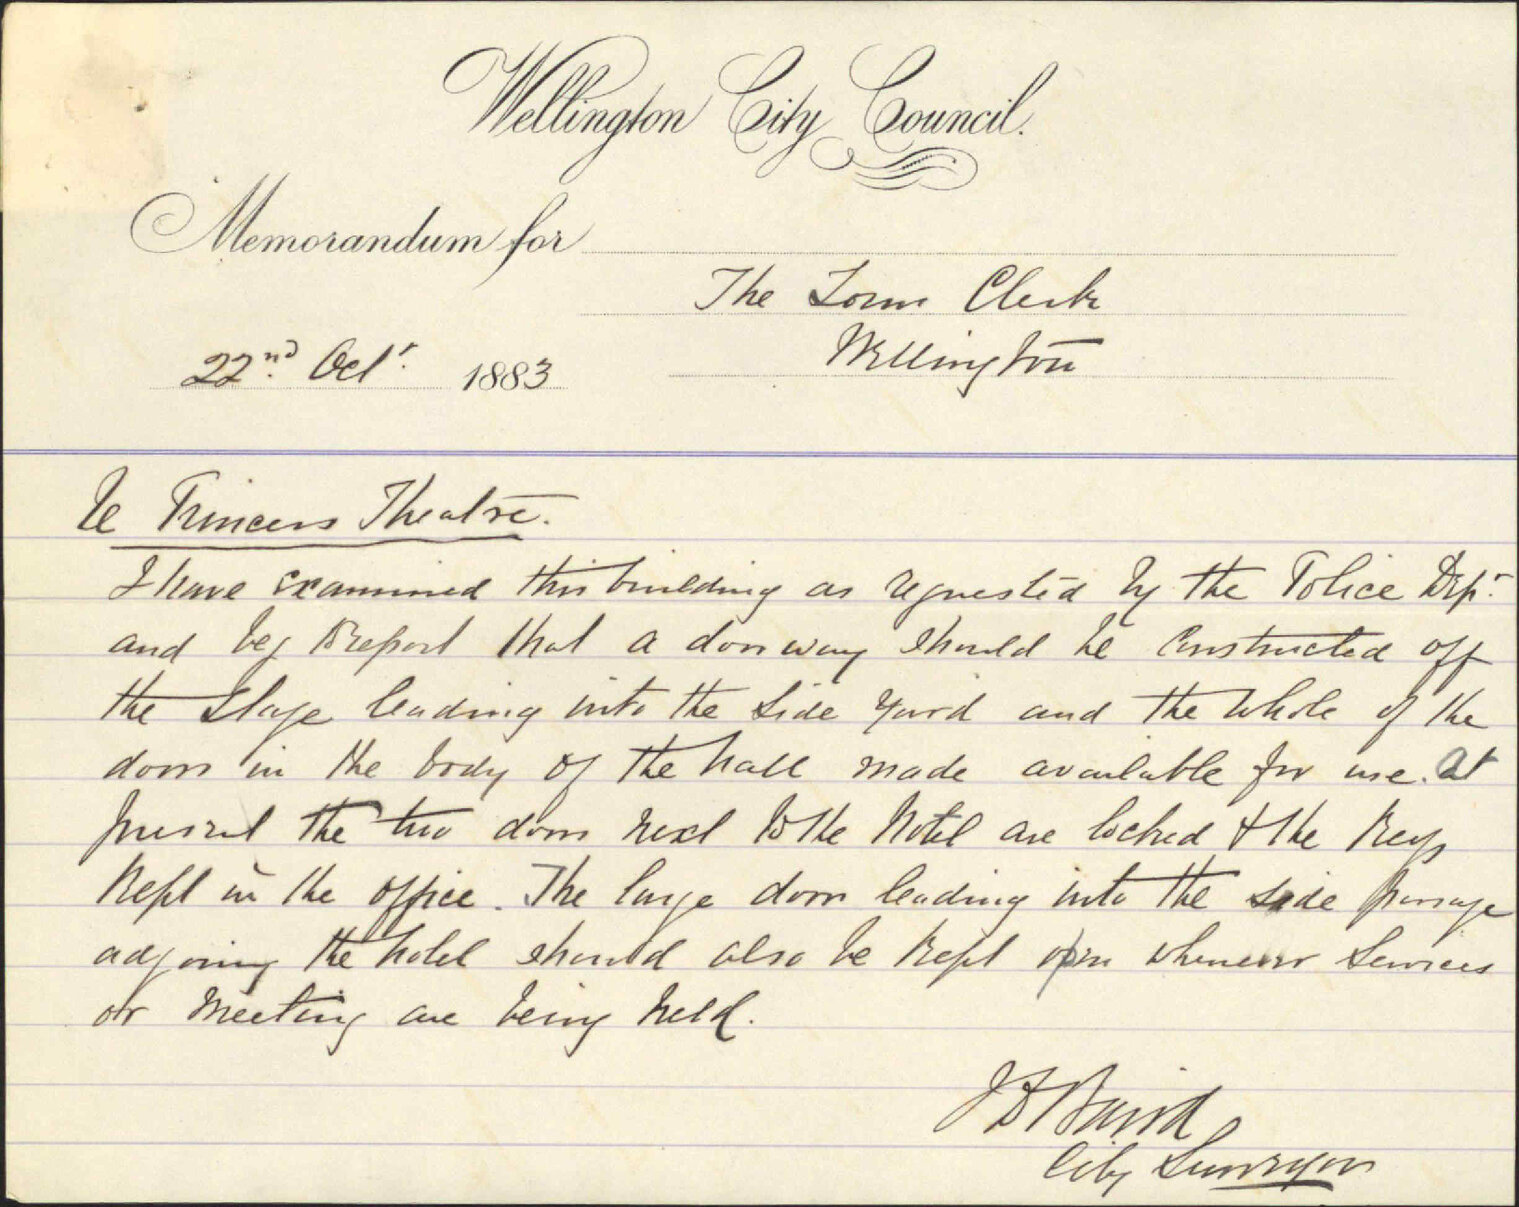 Wellington City Council.
Memorandum for
The Town Clerk
22nd. Oct r. 1883
Wellington
Re Princess Theatre.
I have examined this building as requested by the Police Dept.
and beg to report that a doorway should be constructed off
the Stage leading into the side yard and the whole of the
doors in the body of the hall made available for use. At
present the two doors next to the Hotel are locked & the keys
kept in the office. The large door leading into the side passage
adjoining the hotel should also be kept open whenever Services
or meeting are being held.
J D Baird
City Surveyor